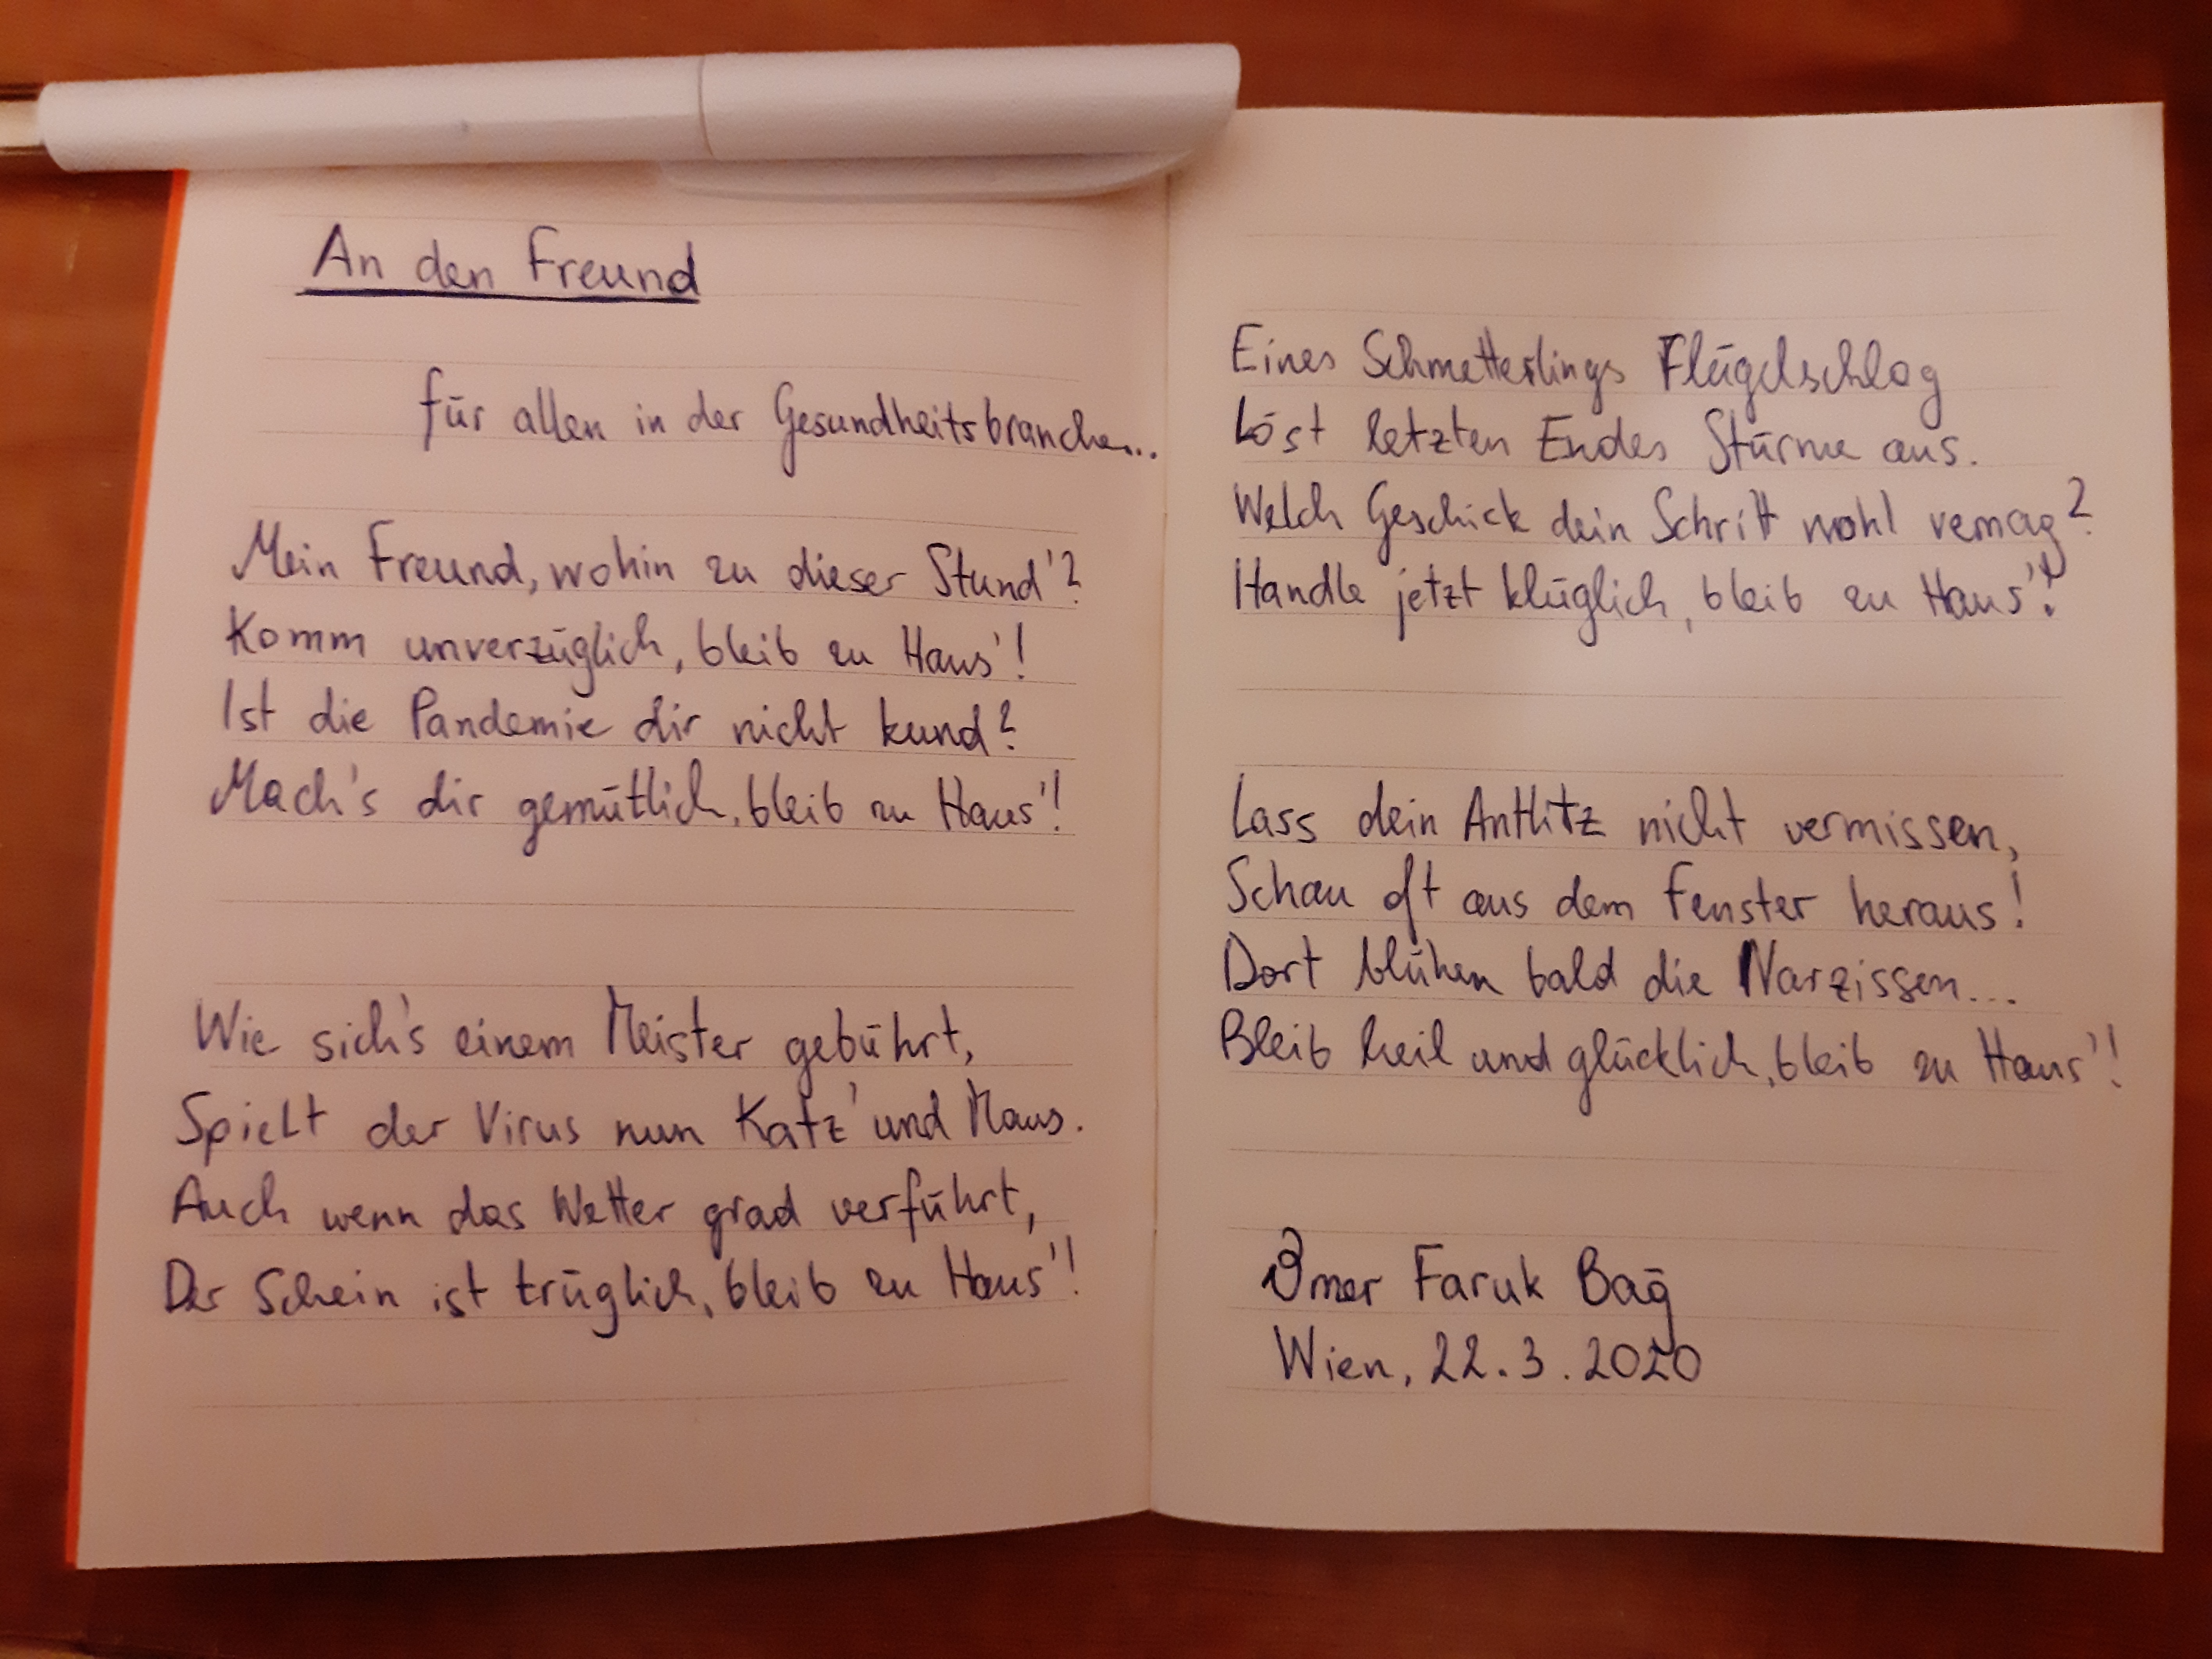 An den Freund
für allen in der Gesundheitsbranche...
Mein Freund, wohin zu dieser Stund'?
Komm unverzüglich, bleib zu Haus'!
Ist die Pandemie dir nicht kund?
Mach's dir gemütlich, bleib zu Haus'!
Wie sich's einem Meister gebührt,
Spielt der Virus nun Katz' und Maus.
Auch wenn das Wetter grad verführt,
Der Schein ist trüglich, bleib zu Haus'!
Eines Schmetterlings Flügelschlag
Löst letzten Endes Stürme aus.
Welch Geschick dein Schritt wohl vermag?
Handle jetzt klüglich, bleib zu Haus'!
Lass dein Antlitz nicht vermissen,
Schau oft aus dem Fenster heraus!
Dort blühen bald die Narzissen...
Bleib heil und glücklich, bleib zu Haus'!
Ömer Faruk Bağ
Wien, 22.3.2020